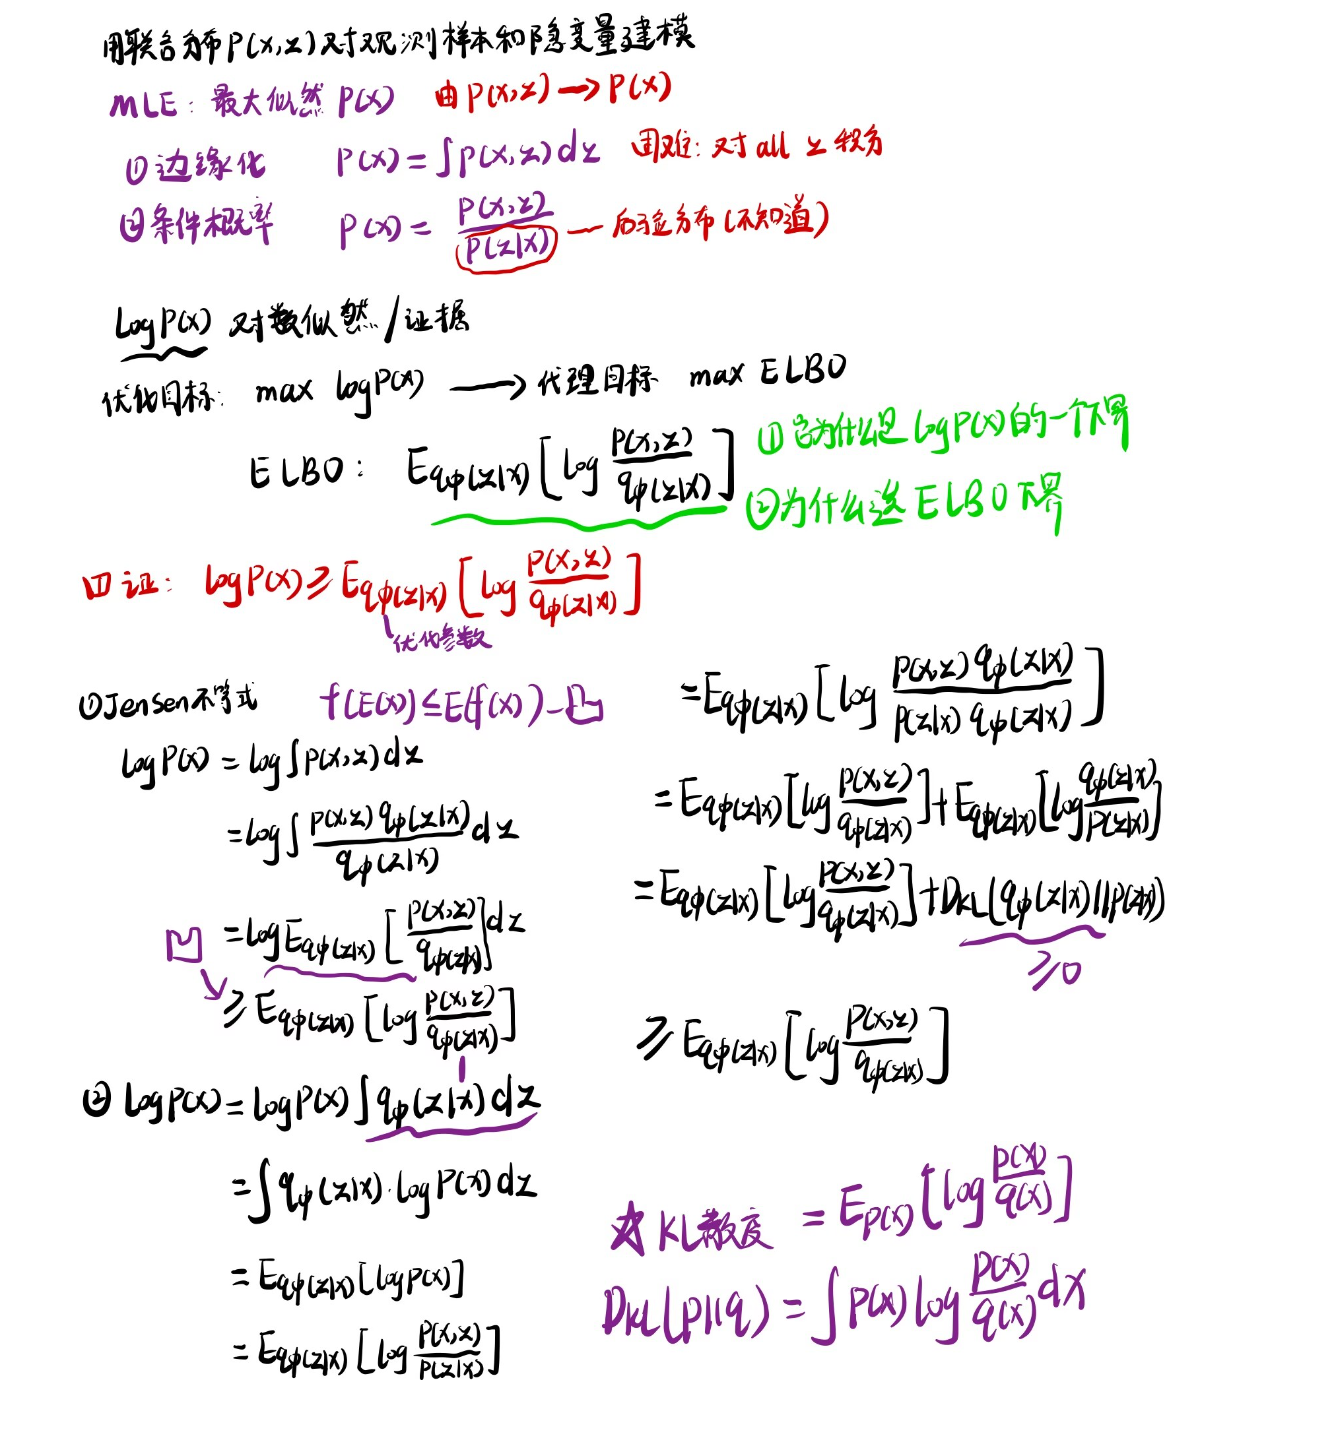 用联合分布P(x,z)对观测样本和隐变量建模
MLE: 最大似然 P(x) 由P(x,z)→P(x)
①边缘化 P(x)=∫p(x,z)dz 困难:对all z积分
②条件概率 P(x)=P(x,z)/P(z|x) — 后验分布(不知道)
logP(x) 对数似然/证据
优化目标: max logP(x) → 代理目标 max ELBO
ELBO: E_{qφ(z|x)}[log P(x,z)/qφ(z|x)]
①它为什么是logP(x)的一个下界
②为什么选ELBO下界
⑴证: logP(x)≥E_{qφ(z|x)}[log P(x,z)/qφ(z|x)]
优化参数
①Jensen不等式 f(E(x))≤E(f(x))-凸
logP(x)=log∫P(x,z)dz
=log∫P(x,z)qφ(z|x)/qφ(z|x) dz
凹
=logE_{qφ(z|x)}[P(x,z)/qφ(z|x)]dz
≥E_{qφ(z|x)}[log P(x,z)/qφ(z|x)]
1
② logP(x)=logP(x)∫qφ(z|x)dz
=∫qφ(z|x)·logP(x)dz
=E_{qφ(z|x)}[logP(x)]
=E_{qφ(z|x)}[log P(x,z)/P(z|x)]
=E_{qφ(z|x)}[log P(x,z)qφ(z|x)/P(z|x)qφ(z|x)]
=E_{qφ(z|x)}[log P(x,z)/qφ(z|x)]+E_{qφ(z|x)}[log qφ(z|x)/P(z|x)]
=E_{qφ(z|x)}[log P(x,z)/qφ(z|x)]+D_{KL}(qφ(z|x)||P(z|x))
≥0
≥E_{qφ(z|x)}[log P(x,z)/qφ(z|x)]
☆ KL散度 =E_{P(x)}[log P(x)/q(x)]
D_{KL}(p||q)=∫P(x)log P(x)/q(x) dx